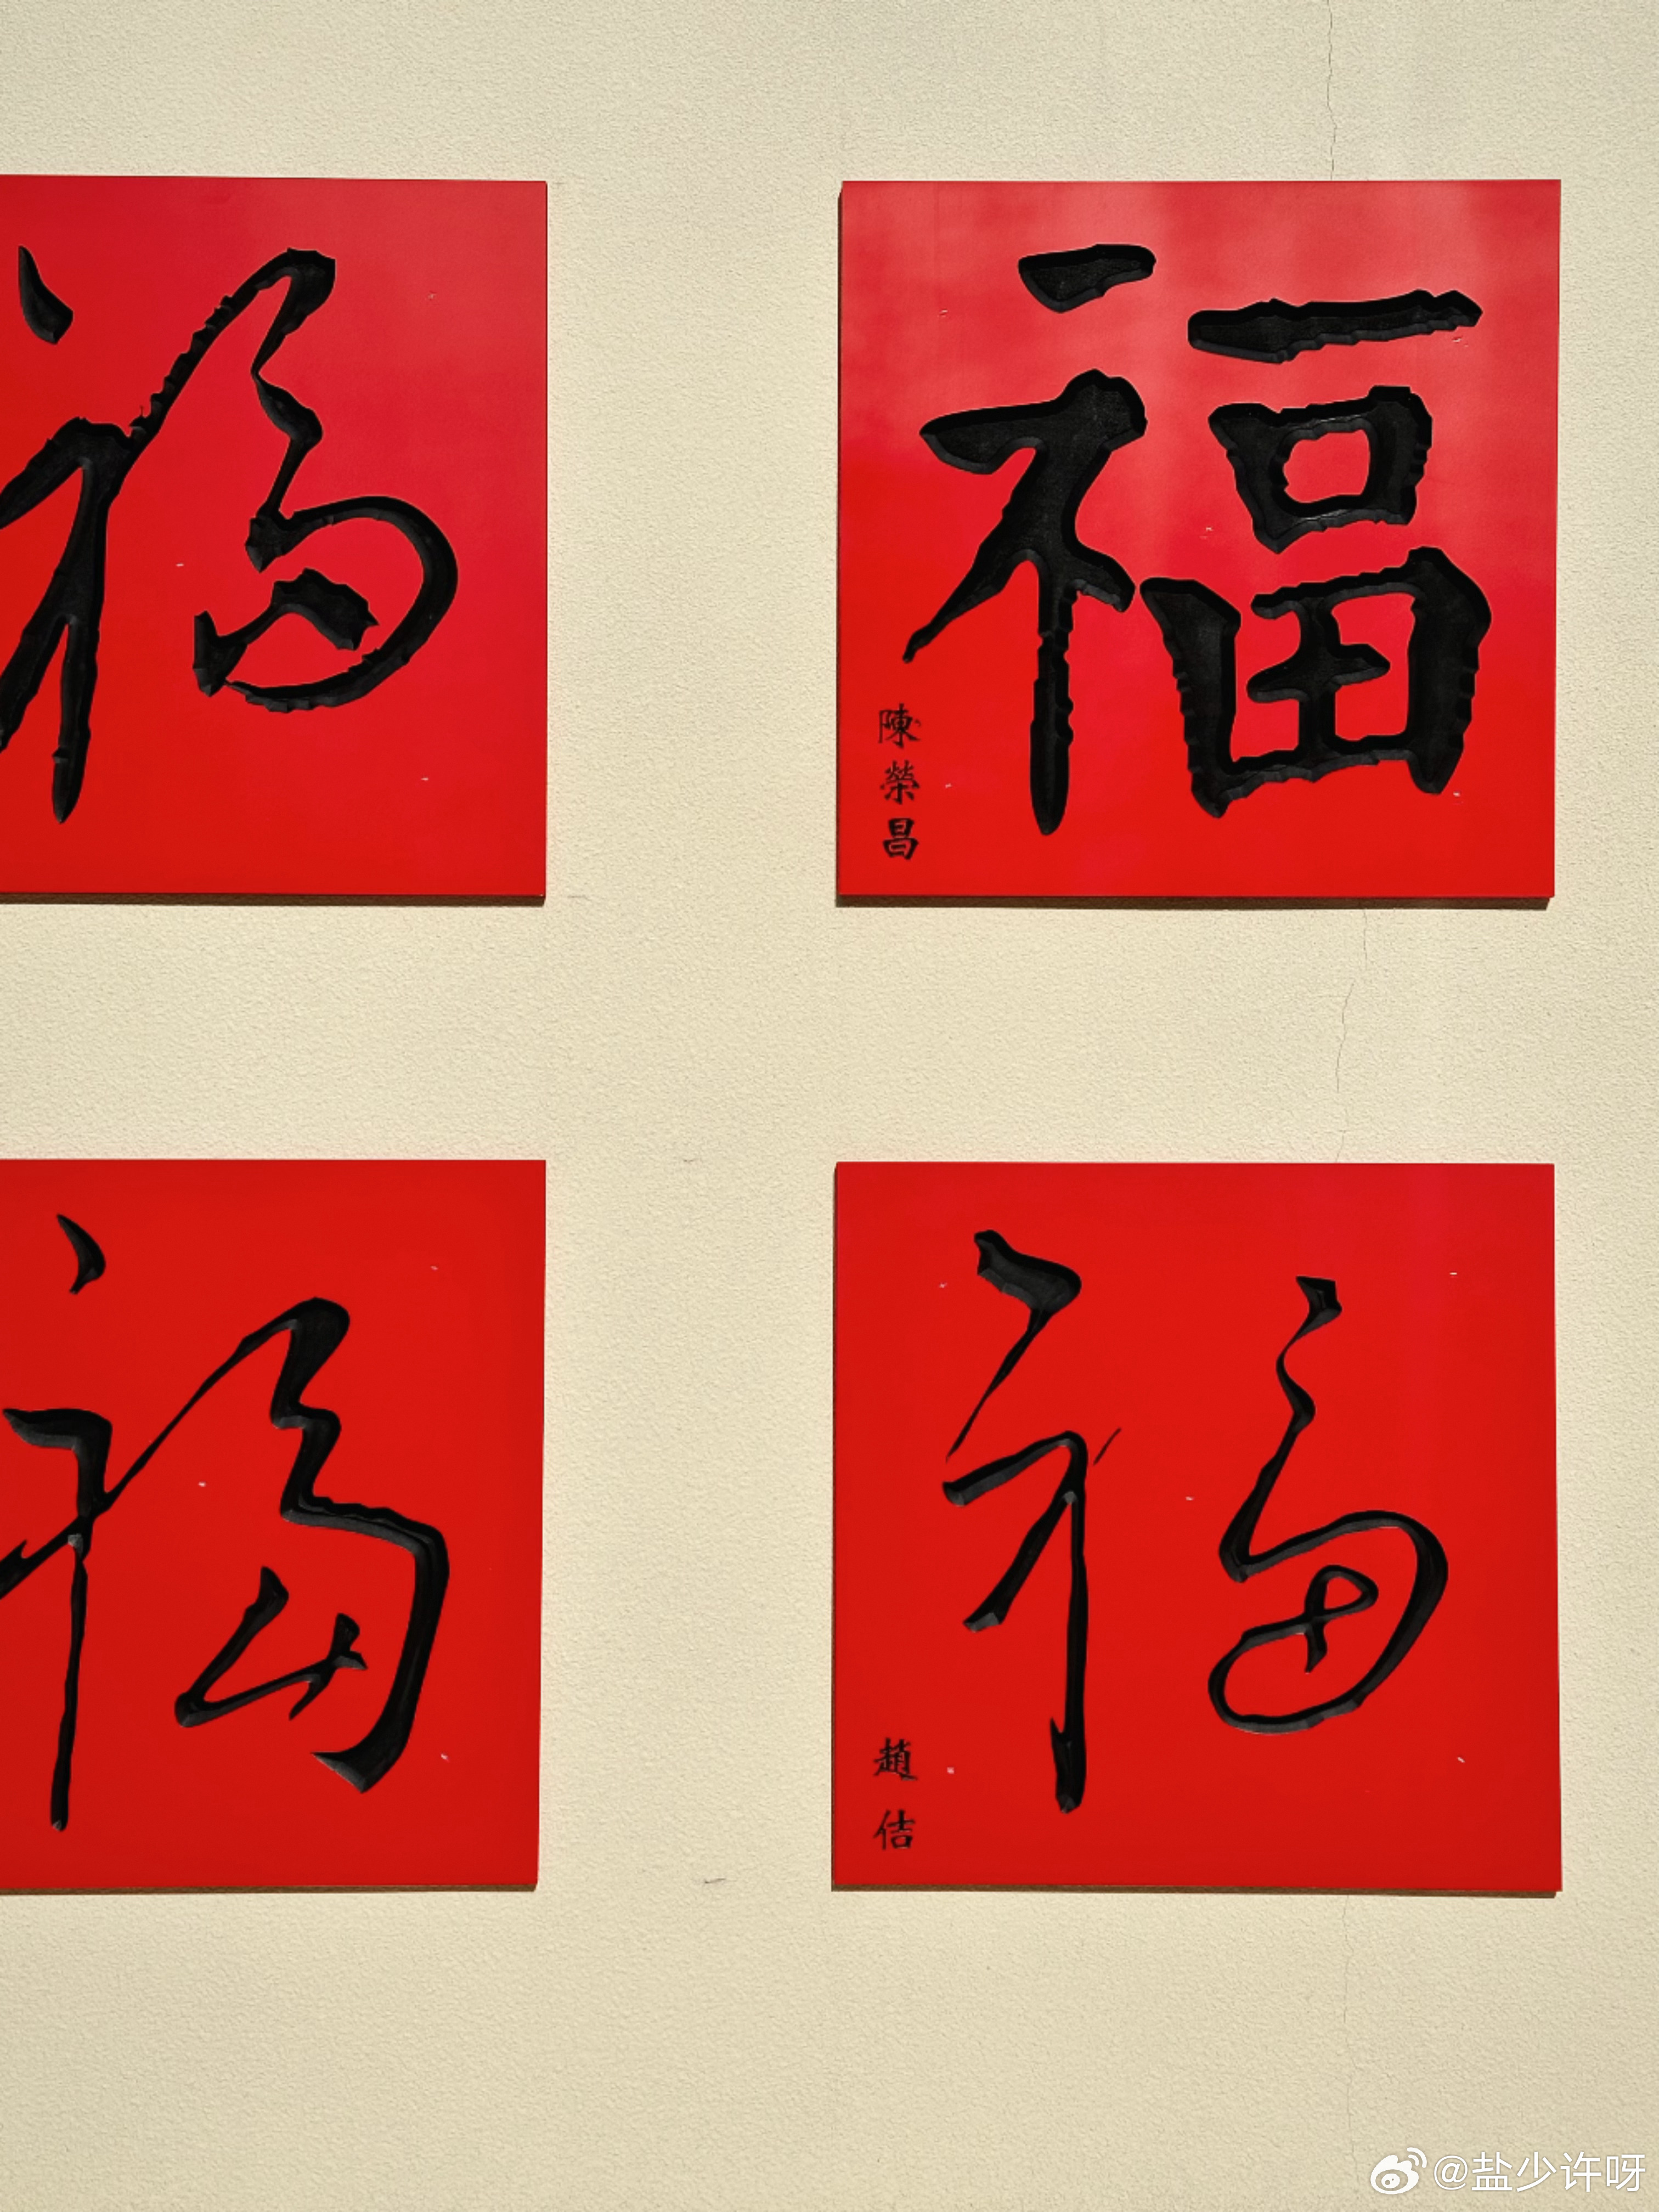 福
福
陳榮昌
福
福
趙佶
@盐少许呀